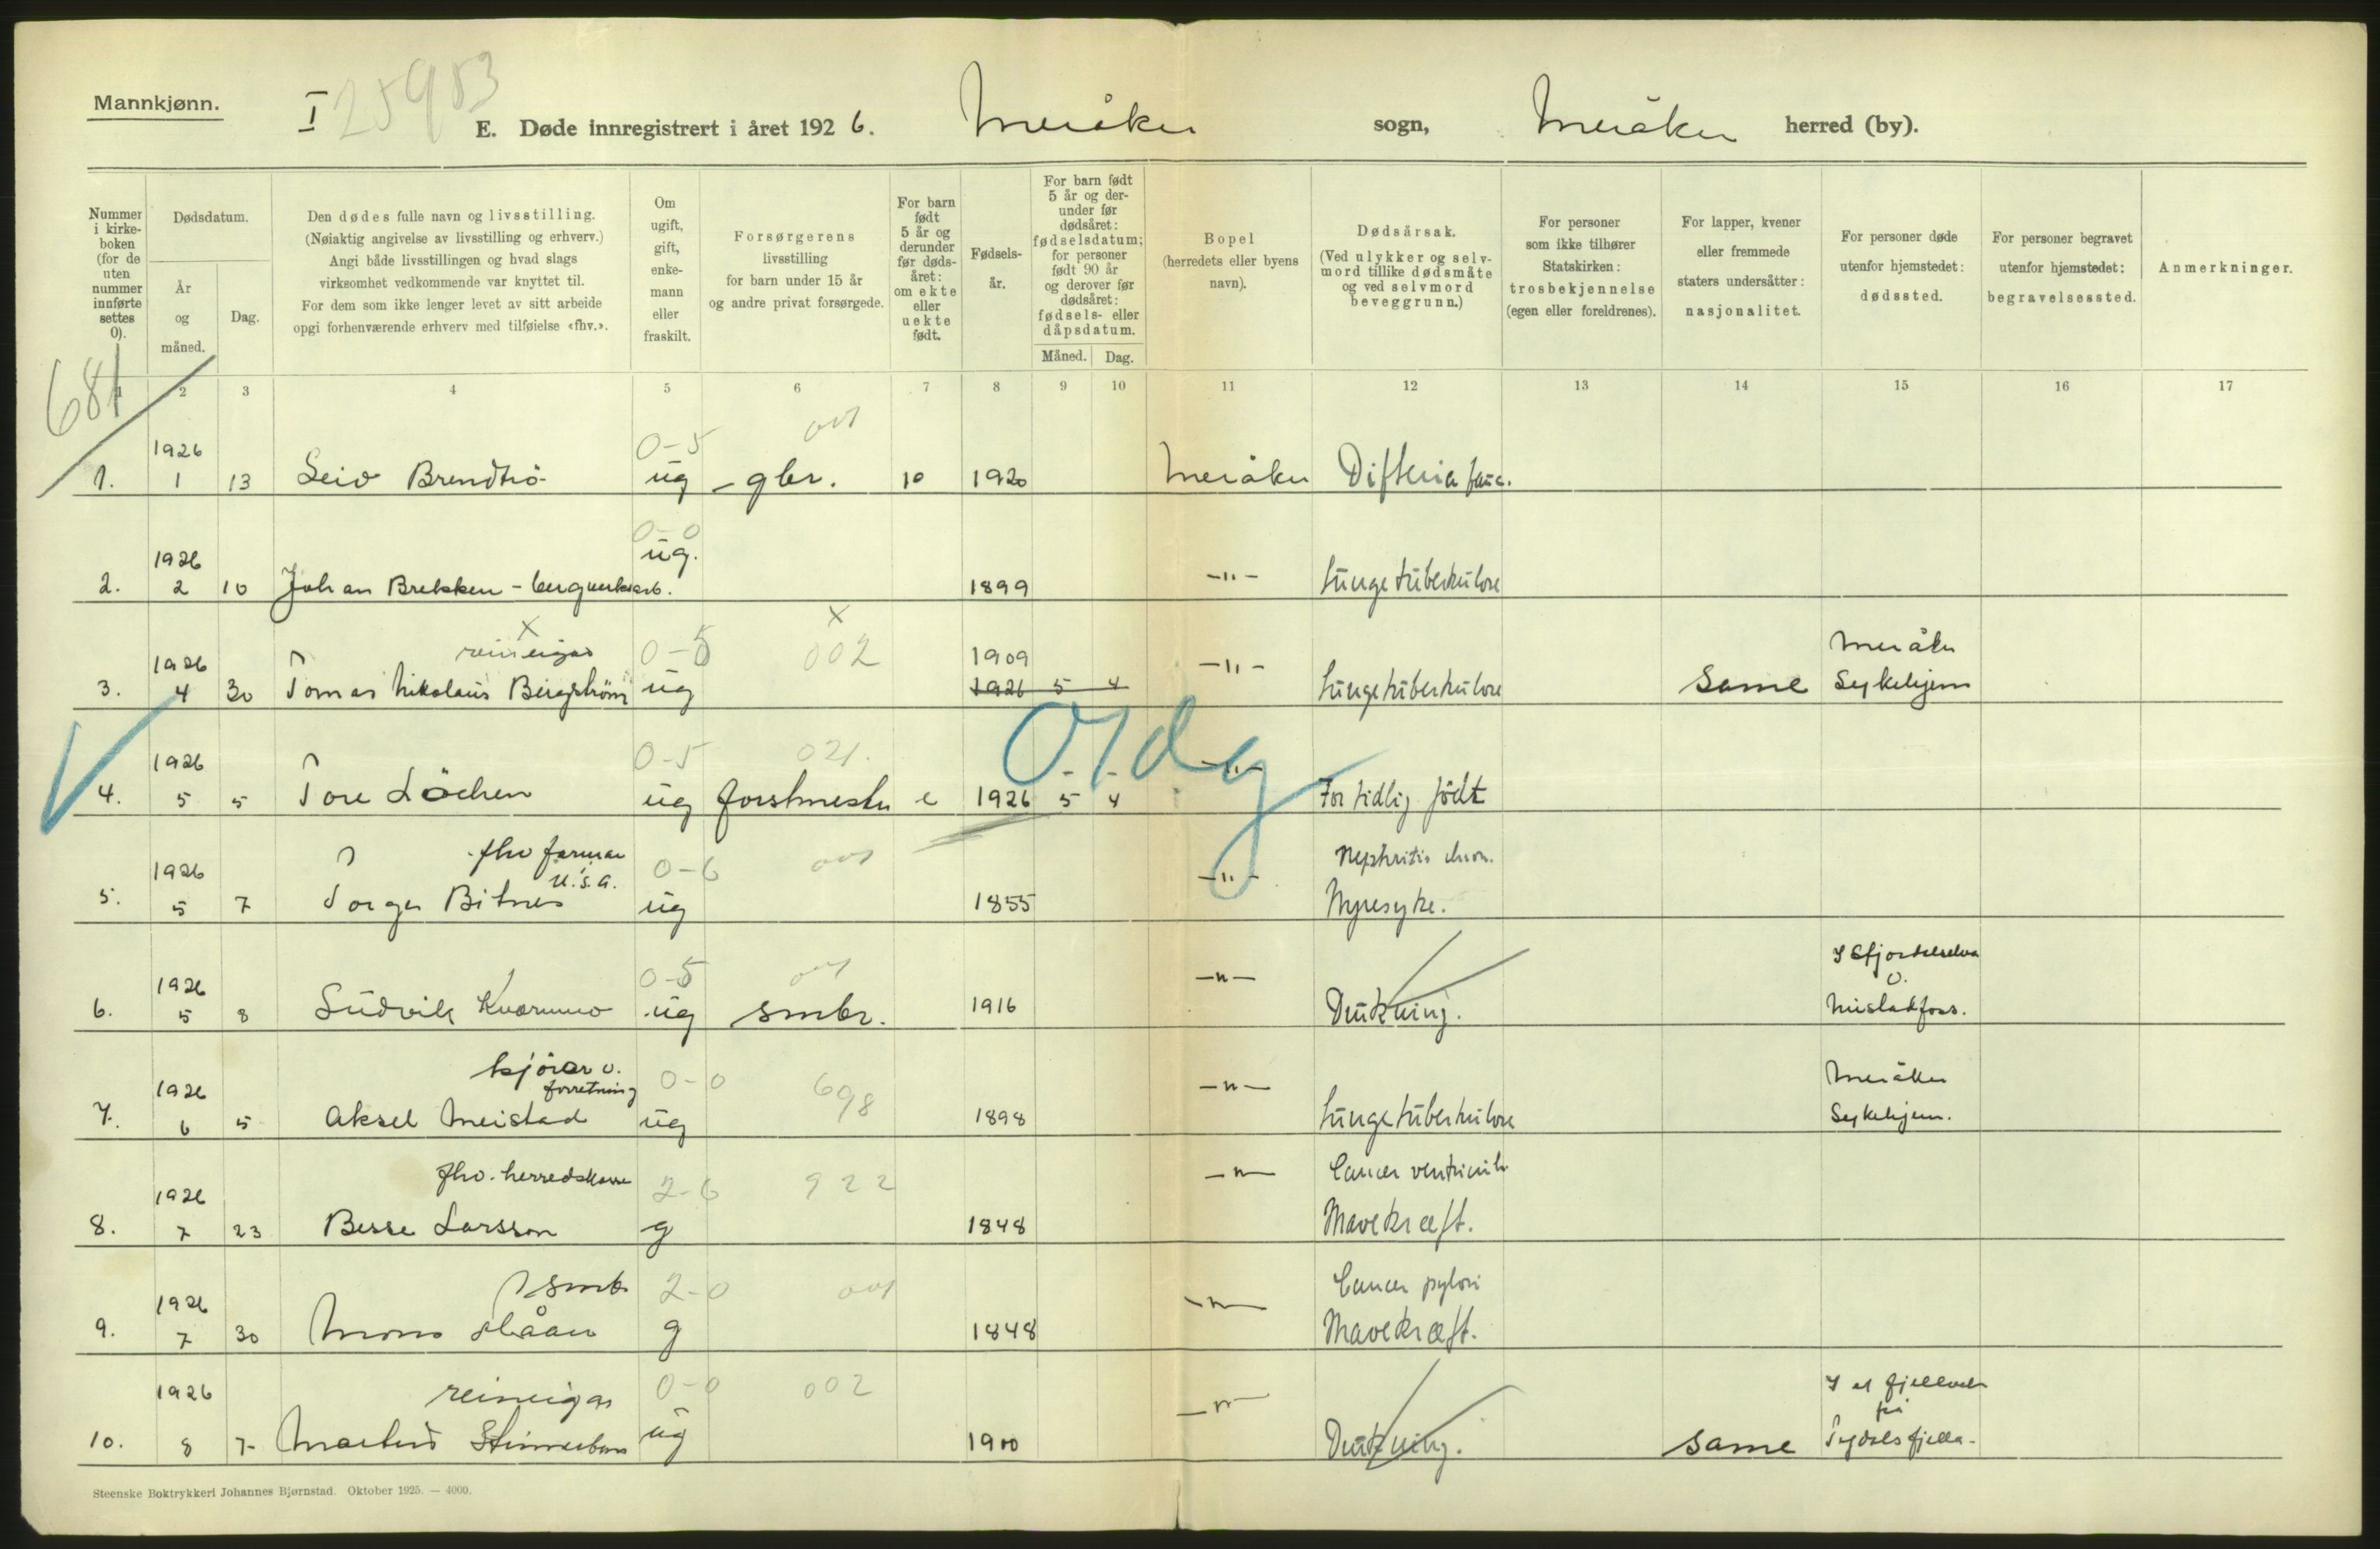 Mannkjønn.
I 25983
E. Døde innregistrert i året 1926. Meråker sogn, Meråker herred (by).
Nummer i kirke-boken (for de uten nummer innførte settes 0).
Dødsdatum.
År og måned.
Dag.
Den dødes fulle navn og livsstilling.
(Nøiaktig angivelse av livsstilling og erhverv.)
Angi både livsstillingen og hvad slags
virksomhet vedkommende var knyttet til.
For dem som ikke lenger levet av sitt arbeide
opgi forhenværende erhverv med tilføielse «fhv.».
Om ugift, gift, enke-mann eller fraskilt.
Forsørgerens
livsstilling
for barn under 15 år
og andre privat forsørgede.
For barn født 5 år og derunder før døds-året: om ekte eller uekte født.
Fødsels-år.
For barn født 5 år og der-under før dødsåret: fødselsdatum; for personer født 90 år og derover før dødsåret: fødsels- eller dåpsdatum.
Måned. Dag.
Bopel
(herredets eller byens
navn).
Dødsårsak.
(Ved ulykker og selv-
mord tillike dødsmåte
og ved selvmord
beveggrunn.)
For personer
som ikke tilhører
Statskirken:
trosbekjennelse
(egen eller foreldrenes).
For lapper, kvener
eller fremmede
staters undersåtter:
nasjonalitet.
For personer døde
utenfor hjemstedet:
dødssted.
For personer begravet
utenfor hjemstedet:
begravelsessted.
Anmerkninger.
681
1 2 3 4 5 6 7 8 9 10 11 12 13 14 15 16 17
1926 0-5 001
1. 1 13 Leiv Brendtrö ug - gbr. 1920 Meråker Difteria fauc.
1926 0-0 ug.
2. 2 10 Johan Brekken - bergverksarb. 1899 -"- Lungetuberkulose
x x
1926 reineigar 0-5 002 1909 -"- Meråker
3. 4 30 Tomas Nikolaus Bergström ug 1926 5 4 Lungetuberkulose Same Sykehjem
1926 0-5 021. 01dg -"-
4. 5 5 Tore Löchen ug forstmester e 1926 5 4 For tidlig födt
1926 fhv farmar U.S.A. 0-6 001 -"- Nephritis chron.
5. 5 7 Torger Bitnes ug 1855 Nyresyke.
1926 0-5 001 -"- I Stjørdalselva v.
6. 5 8 Ludvik Kvernmo ug smbr. 1916 Drukning. Mistadfoss.
1926 kjörer v. forretning 0-0 698 -"- Meråker
7. 6 5 Aksel Meistad ug 1898 Lungetuberkulose Sykehjem.
1926 fhv. herredskasse 2-6 922 -"- Cancer ventriculi
8. 7 23 Besse Larsson g 1848 Mavekræft.
1926 smb 2-0 001 -"- Cancer pylori
9. 7 30 Mons g 1848 Mavekræft.
1926 reineigar 0-0 002 -"- I et fjellvatn på
10. 8 7 ug 1900 Drukning. Same Tydalsfjella.
Steenske Boktrykkeri Johannes Bjørnstad. Oktober 1925. — 4000.